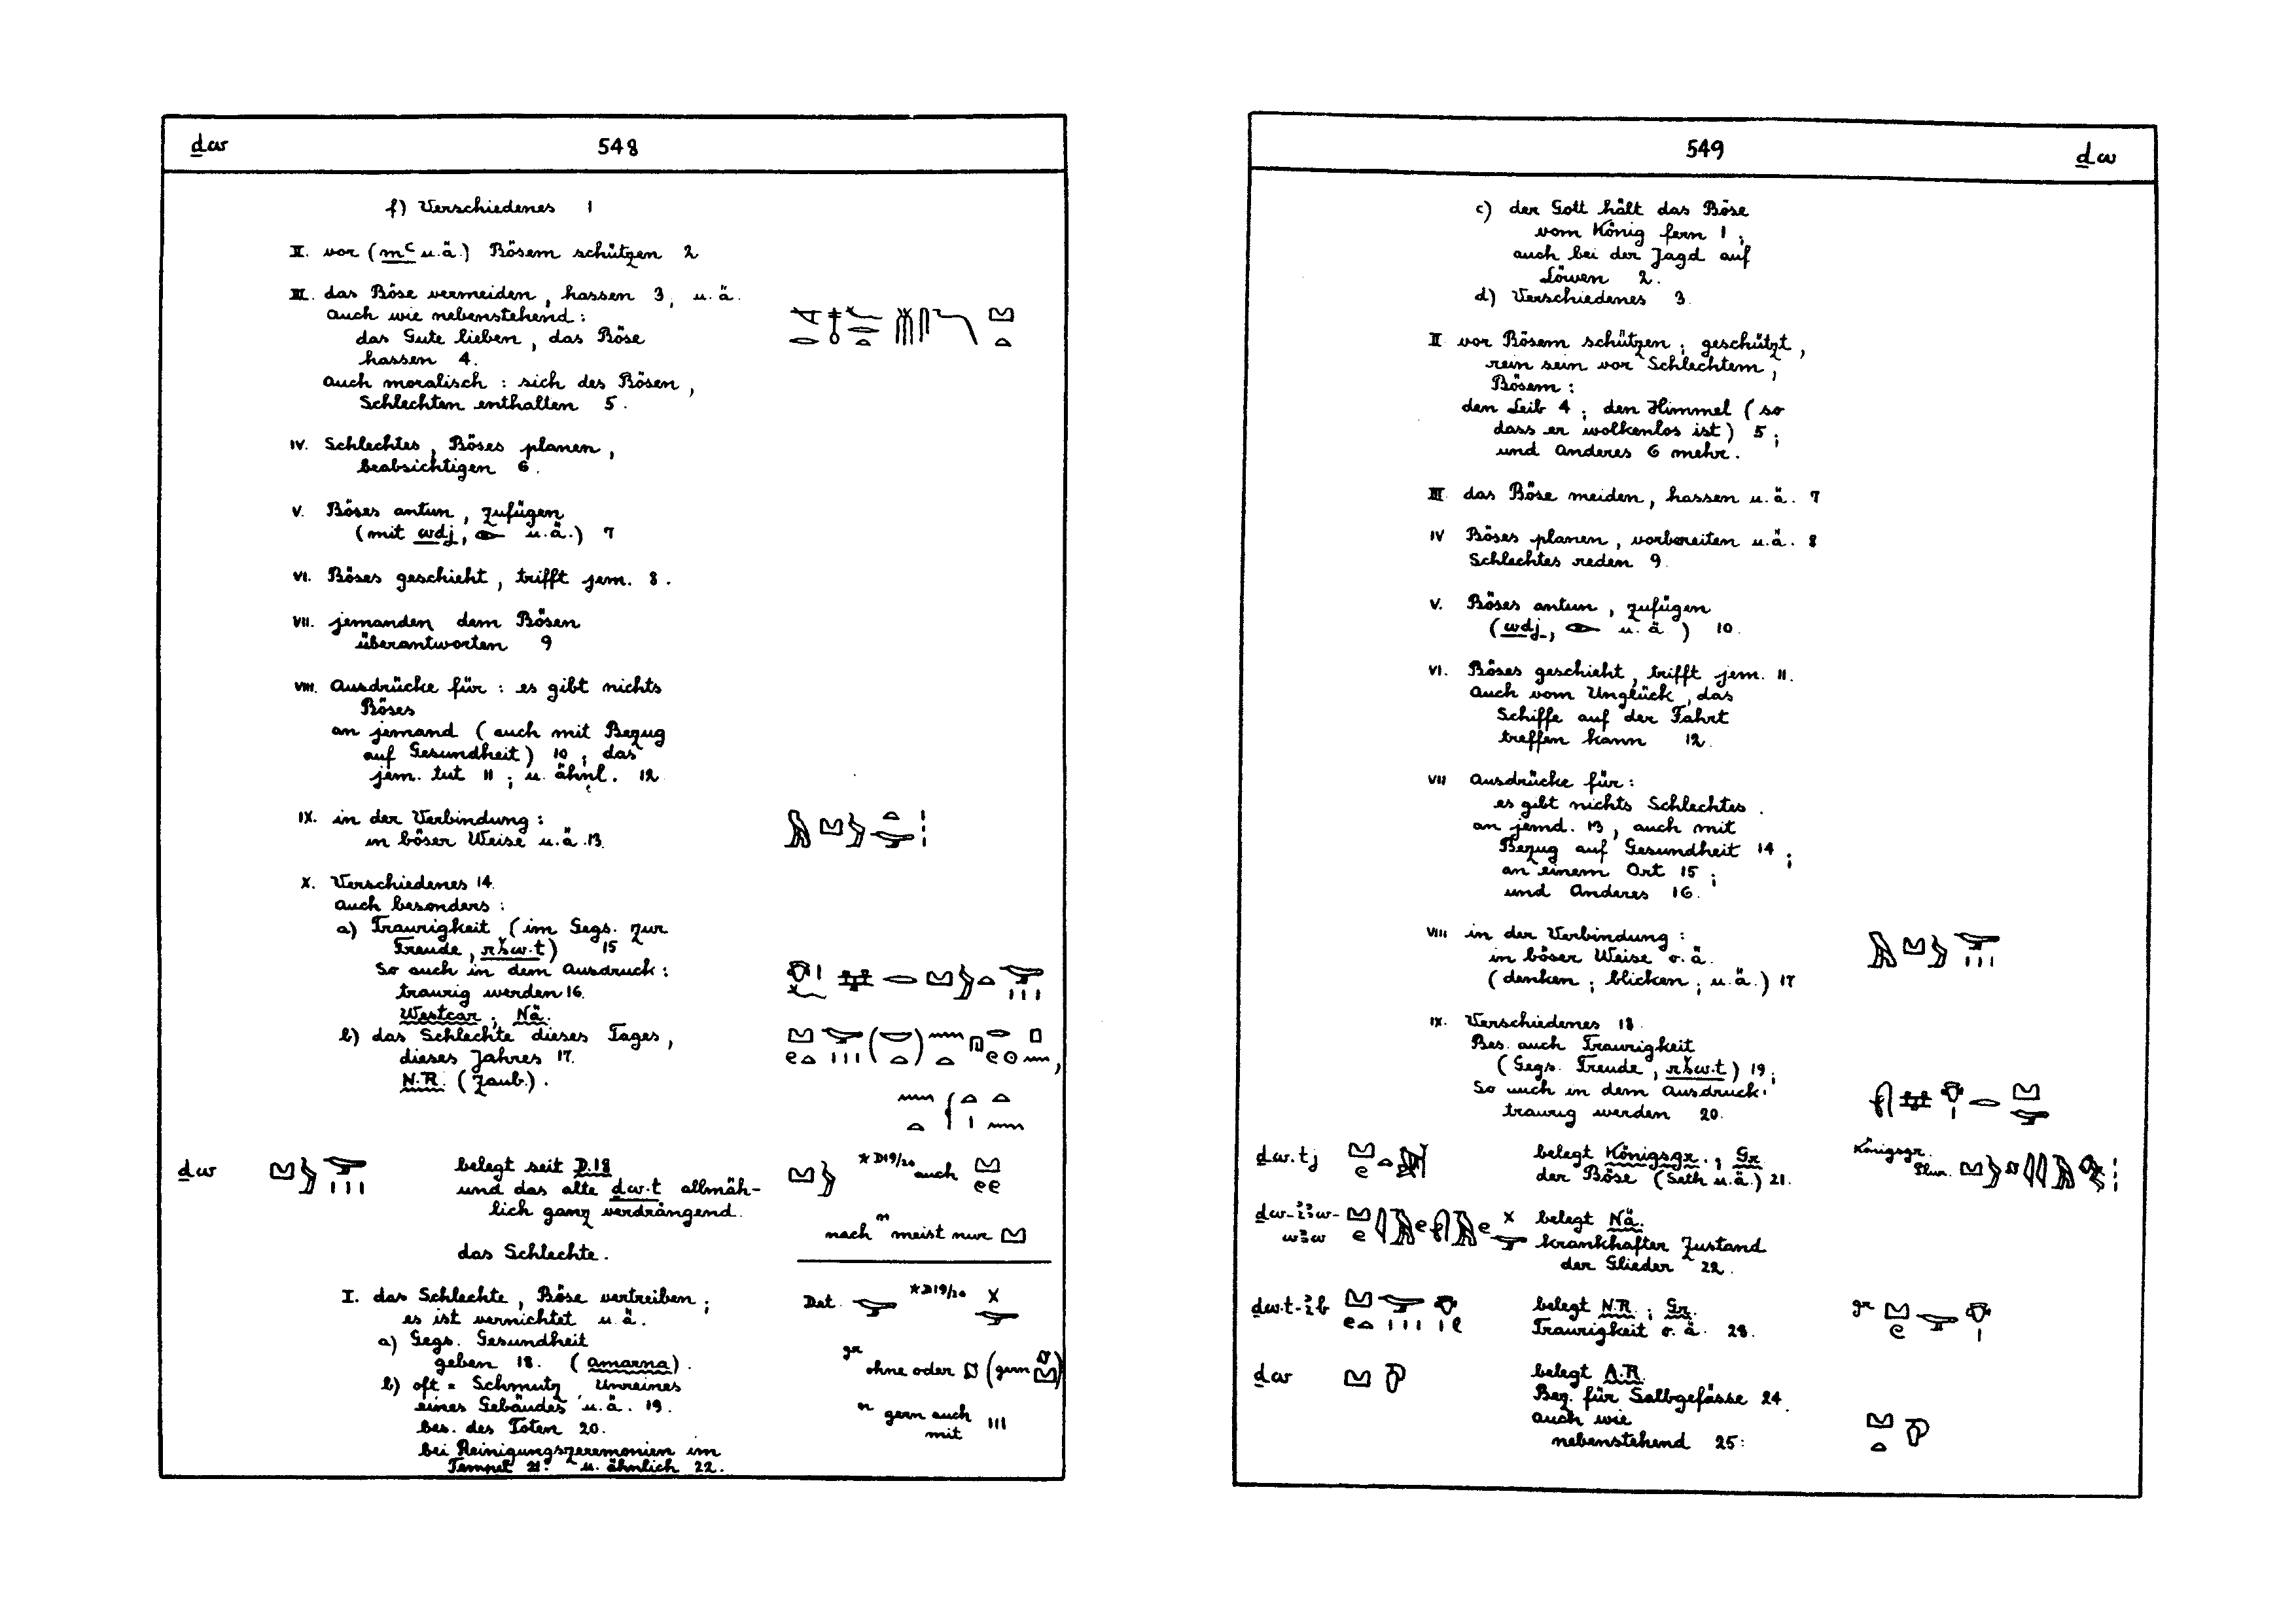 ḏw 548
f) Verschiedenes 1
II. vor (mꜥ u.ä.) Bösem schützen 2
III. das Böse vermeiden, hassen 3, u.ä.
auch wie nebenstehend:
das Gute lieben, das Böse
hassen 4.
auch moralisch: sich des Bösen,
Schlechten enthalten 5.
IV. Schlechtes, Böses planen,
beabsichtigen 6.
V. Böses antun, zufügen
(mit wdj, u.ä.) 7
VI. Böses geschieht, trifft jem. 8.
VII. jemanden dem Bösen
überantworten 9
VIII. Ausdrücke für: es gibt nichts
Böses
an jemand (auch mit Bezug
auf Gesundheit) 10; das
jem. tut 11; u. ähnl. 12
IX. in der Verbindung:
in böser Weise u.ä. 13.
X. Verschiedenes 14.
auch besonders:
a) Traurigkeit (im Gegs. zur
Freude, ršw.t) 15
So auch in dem Ausdruck:
traurig werden 16.
Westcar; Nä.
b) das Schlechte dieses Tages,
dieses Jahres 17.
N.R. (Zaub.).
ḏw belegt seit D.18 *D19/20 auch
und das alte ḏw.t allmäh-
lich ganz verdrängend.
nach n meist nur
das Schlechte.
I. das Schlechte, Böse vertreiben;
Det. *D19/20
es ist vernichtet u.ä.
a) Gegs. Gesundheit
geben 18. (Amarna).
gr ohne oder (gern )
b) oft = Schmutz, Unreines
eines Gebäudes u.ä. 19.
n gern auch
mit
bes. des Toten 20.
bei Reinigungszeremonien im
Tempel 21. u. ähnlich 22.
549 ḏw
c) der Gott hält das Böse
vom König fern 1;
auch bei der Jagd auf
Löwen 2.
d) Verschiedenes 3.
II vor Bösem schützen; geschützt,
rein sein vor Schlechtem,
Bösem:
den Leib 4; den Himmel (so
dass er wolkenlos ist) 5;
und Anderes 6 mehr.
III das Böse meiden, hassen u.ä. 7
IV Böses planen, vorbereiten u.ä. 8
Schlechtes reden 9.
V. Böses antun, zufügen
(wdj, u.ä.) 10.
VI. Böses geschieht, trifft jem. 11.
auch vom Unglück, das
Schiffe auf der Fahrt
treffen kann 12.
VII Ausdrücke für:
es gibt nichts Schlechtes.
an jemd. 13, auch mit
Bezug auf Gesundheit 14;
an einem Ort 15;
und Anderes 16.
VIII in der Verbindung:
in böser Weise o.ä.
(denken; blicken; u.ä.) 17
IX. Verschiedenes 18.
Bes. auch Traurigkeit
(Gegs. Freude, ršw.t) 19;
So auch in dem Ausdruck:
traurig werden 20.
ḏw.tj belegt Königsgr.; Gr. Königsgr.
der Böse (Seth u.ä.) 21. Plur.
belegt Nä.
krankhafter Zustand
der Glieder 22.
ḏw.t-ỉb belegt N.R.; Gr. gr
Traurigkeit o.ä. 23.
ḏw belegt A.R.
Bez. für Salbgefässe 24.
auch wie
nebenstehend 25: